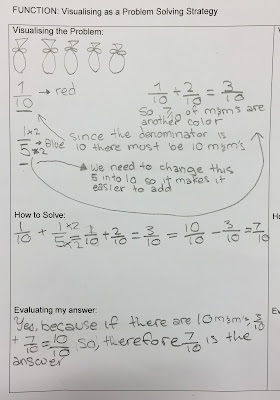 FUNCTION: Visualising as a Problem Solving Strategy
Visualising the Problem:
1/10 → red
1/10 + 2/10 = 3/10
So 7/10 of m&m's are
another color
1×2/5×2 → Blue
since the denominator is
10 there must be 10 m&m's
we need to change this
5 into 10 so it makes it
easier to add
How to Solve:
1/10 + 1×2/5×2 = 1/10 + 2/10 = 3/10 = 10/10 - 3/10 = 7/10
Evaluating my answer:
Yes, because if there are 10 m&m's, 3/10
+ 7/10 = 10/10 So, therefore 7/10 is the
answer